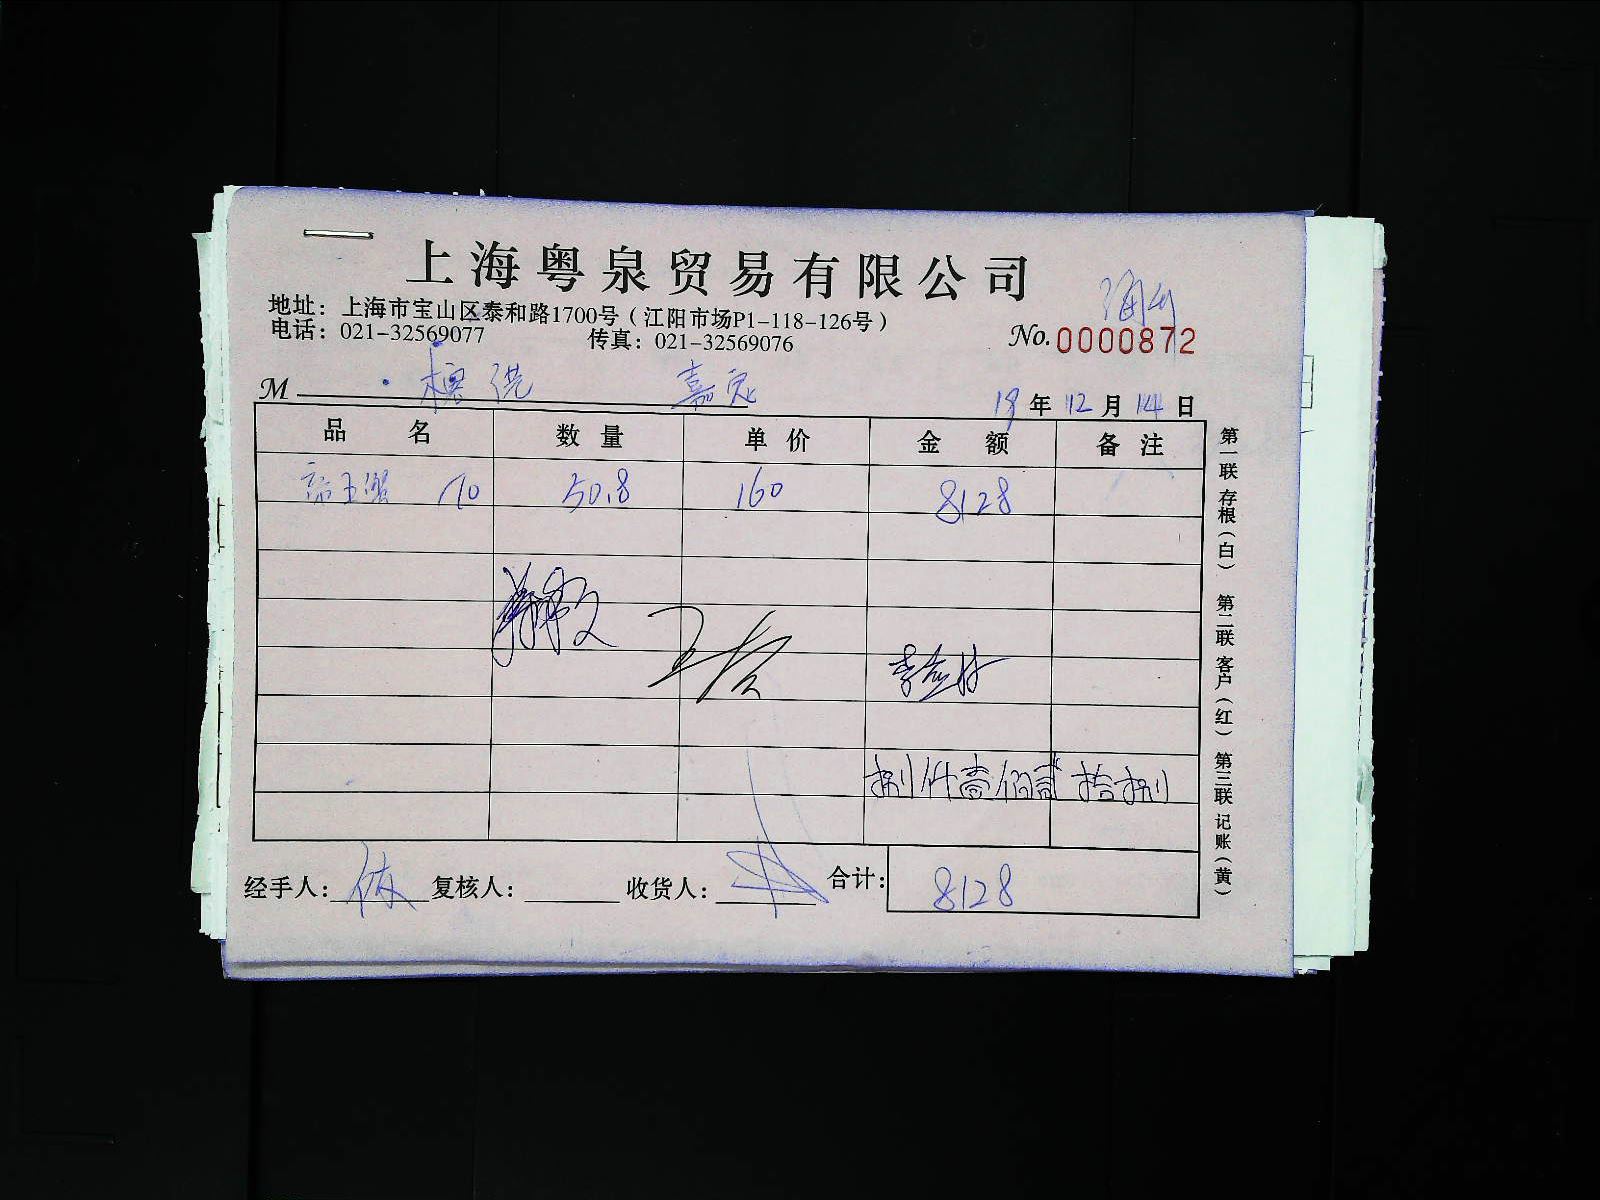 上海粤泉贸易有限公司
地址：上海市宝山区泰和路1700号（江阳市场P1-118-126号）
电话：021-32569077 传真：021-32569076
No. 0000872
M 嘉定
19年12月14日
品名 数量 单价 金额 备注
帝王蟹 50.8 160 8128
捌仟壹佰贰拾捌
经手人： 复核人： 收货人： 合计：8128
第一联 存根（白） 第二联 客户（红） 第三联 记账（黄）